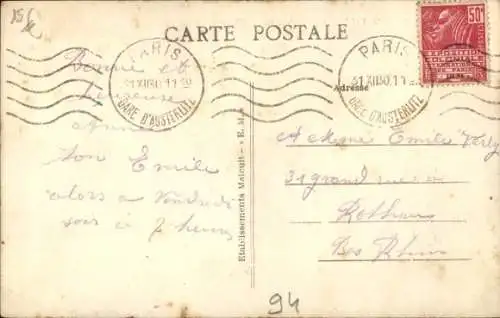 15f
CARTE POSTALE
50c
PARIS
31 XII 30 11
GARE D'AUSTERLITZ
PARIS
31 XII 30 11
GARE D'AUSTERLITZ
Adresse
Bonne et
heureuse
année
Ton Emile
alors a Vendredi
soir a 7 heures
Etablissements Malcuit - E. M.
Emile
31 grand rue
Rothau
Bas Rhin
94